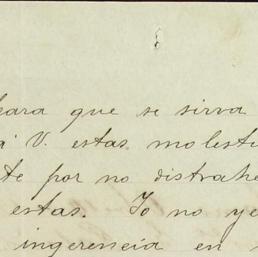 para que se sirva
á V. estas molesti
te por no distrahe
estas. Yo no ve
ingerencia en